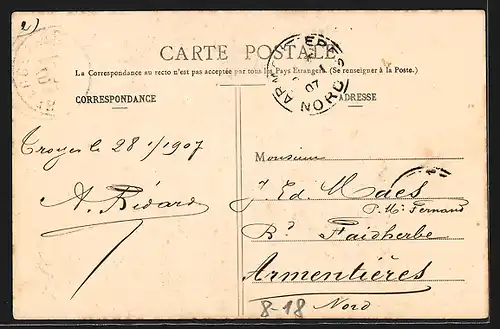 2)
CARTE POSTALE
La Correspondance au recto n'est pas acceptée par tous les Pays Étrangers. (Se renseigner à la Poste.)
CORRESPONDANCE
ADRESSE
NORD
07
Troyes le 28 1/1907
A. Bédard
Monsieur
J Ed. Maes
P. Mr Fernand
Bd Faidherbe
Armentières
Nord
8-18